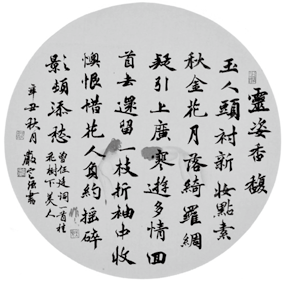 靈姿香馥
玉人頭襯新妝點素
秋金花月落綺羅綢
疑引上廣寒遊多情回
首去還留一枝折袖中收
懊恨惜花人負約搖碎
影頻添愁
曾任是詞一首桂
花樹下美人
辛丑秋月